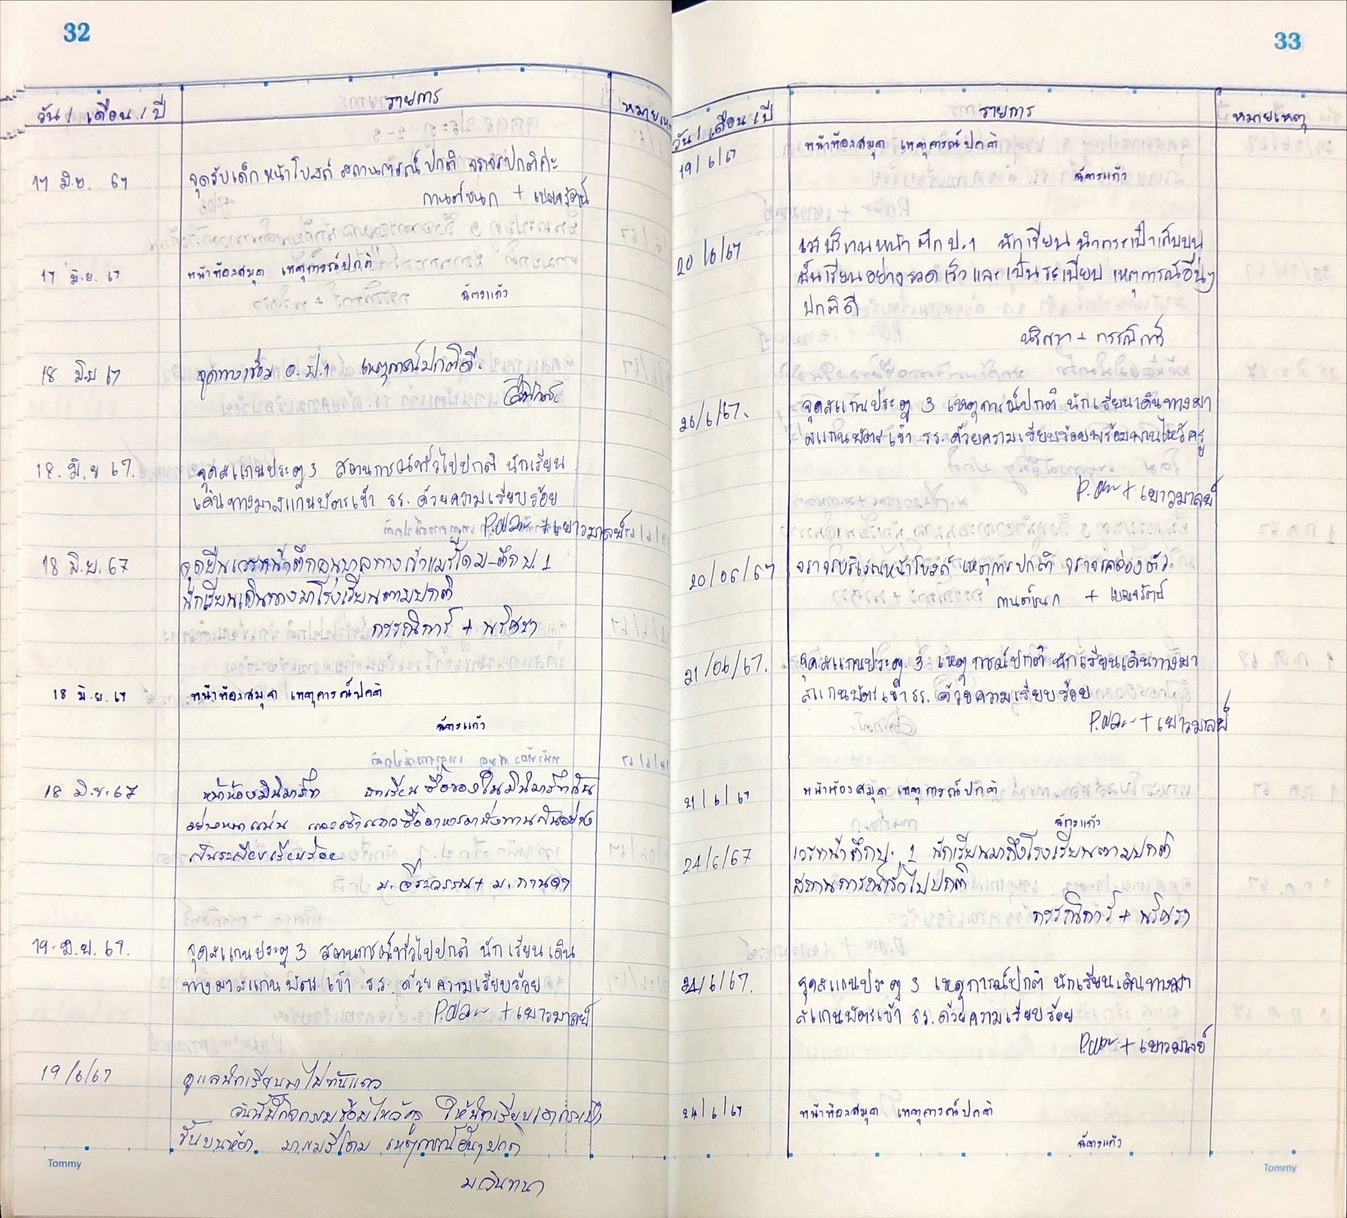 32
วัน / เดือน / ปี รายการ หมายเหตุ
17 มิ.ย. 67 จุดรับเด็กหน้าโบสถ์ สถานการณ์ปกติ จราจรปกติค่ะ
กานต์ชนก + เบญจรัตน์
17 มิ.ย. 67 หน้าห้องสมุด เหตุการณ์ปกติ
ฉัตรแก้ว
18 มิ.ย 67 จุดทางเชื่อม อ. ป.1 เหตุการณ์ปกติดี.
18. มิ.ย 67. จุดสแกนประตู 3 สถานการณ์ทั่วไปปกติ นักเรียน
เดินทางมาสแกนบัตรเข้า รร. ด้วยความเรียบร้อย
+ เยาวมาลย์
18 มิ.ย. 67 จุดยืนเวรหน้าตึกอนุบาลทางเข้าแมรี่โดม-ตึก ป.1
นักเรียนเดินทางมาโรงเรียนตามปกติ
กรรณิการ์ + นริศรา
18 มิ.ย. 67 หน้าห้องสมุด เหตุการณ์ปกติ
ฉัตรแก้ว
18 มิ.ย. 67 หน้าห้องมินิมาร์ท นักเรียนซื้อของในมินิมาร์ทกัน
อย่างหนาแน่น และเข้าแถวซื้ออาหารมานั่งทานกันอย่าง
เป็นระเบียบเรียบร้อย
ม. + ม. กานดา
19. มิ.ย. 67. จุดสแกนประตู 3 สถานการณ์ทั่วไปปกติ นักเรียนเดิน
ทางมาสแกนบัตรเข้า รร. ด้วยความเรียบร้อย
+ เยาวมาลย์
19/6/67 ดูแลนักเรียนมาไม่ทันแถว
วันนี้มีกิจกรรมซ้อมไหว้ครู ให้นักเรียนเอากระเป๋า
ขึ้นบนห้อง มาแมรี่โดม เหตุการณ์อื่นๆ ปกติ
ม.จินทนา
Tommy
33
วัน / เดือน / ปี รายการ หมายเหตุ
19/6/67 หน้าห้องสมุด เหตุการณ์ปกติ
ฉัตรแก้ว
20/6/67 เวรบริเวณหน้าตึก ป.1 นักเรียนนำกระเป๋าเก็บบน
ชั้นเรียนอย่างรวดเร็วและเป็นระเบียบ เหตุการณ์อื่นๆ
ปกติดี
นริศรา + กรรณิการ์
20/6/67. จุดสแกนประตู 3 เหตุการณ์ปกติ นักเรียนเดินทางมา
สแกนบัตรเข้า รร. ด้วยความเรียบร้อยพร้อมพานไหว้ครู
+ เยาวมาลย์
20/06/67 จราจรบริเวณหน้าโบสถ์ เหตุการปกติ จราจรคล่องตัว
กานต์ชนก + เบญจรัตน์
21/06/67. จุดสแกนประตู 3 เหตุการณ์ปกติ นักเรียนเดินทางมา
สแกนบัตรเข้า รร. ด้วยความเรียบร้อย
+ เยาวมาลย์
21/6/67 หน้าห้องสมุด เหตุการณ์ปกติ
ฉัตรแก้ว
24/6/67 เวรหน้าตึก ป. 1 นักเรียนมาถึงโรงเรียนตามปกติ
สถานการณ์ทั่วไปปกติ
กรรณิการ์ + นริศรา
24/6/67. จุดสแกนประตู 3 เหตุการณ์ปกติ นักเรียนเดินทางมา
สแกนบัตรเข้า รร. ด้วยความเรียบร้อย
+ เยาวมาลย์
24/6/67 หน้าห้องสมุด เหตุการณ์ปกติ
ฉัตรแก้ว
Tommy